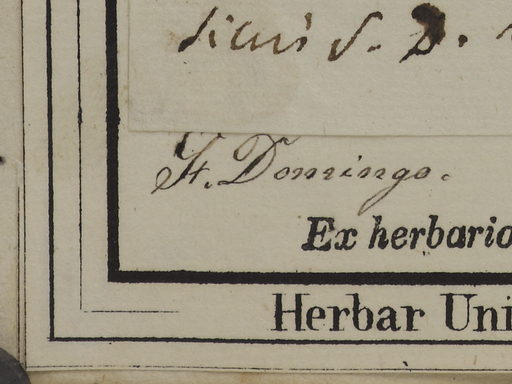 S. D.
St. Domingo.
Ex herbario
Herbar Uni